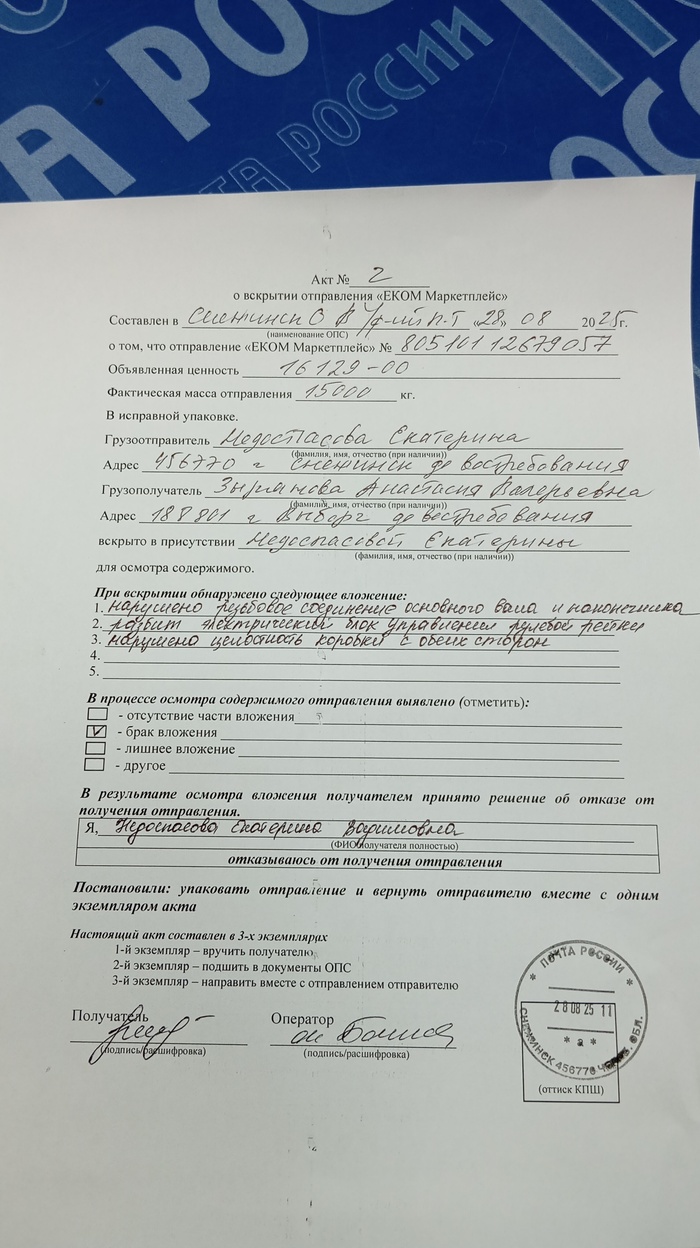 ПО
ТА РОССИИ
ТА РОССИИ
ОС
Акт № 2
о вскрытии отправления «ЕКОМ Маркетплейс»
Составлен в Снежинск О «28» 08 2025г.
(наименование ОПС)
о том, что отправление «ЕКОМ Маркетплейс» № 80510112679057
Объявленная ценность 16129-00
Фактическая масса отправления 15000 кг.
В исправной упаковке.
Грузоотправитель Недоспасова Екатерина
(фамилия, имя, отчество (при наличии))
Адрес 456770 г Снежинск до востребования
Грузополучатель Зырянова Анастасия Валерьевна
(фамилия, имя, отчество (при наличии))
Адрес 188801 г Выборг до востребования
вскрыто в присутствии Недоспасовой Екатерины
(фамилия, имя, отчество (при наличии))
для осмотра содержимого.
При вскрытии обнаружено следующее вложение:
1. нарушено резьбовое соединение основного вала и наконечника
2. разбит электрический блок управления рулевой рейки
3. нарушена целостность коробки с обеих сторон
4.
5.
В процессе осмотра содержимого отправления выявлено (отметить):
- отсутствие части вложения
V - брак вложения
- лишнее вложение
- другое
В результате осмотра вложения получателем принято решение об отказе от
получения отправления.
Я, Недоспасова Екатерина Вадимовна
(ФИО получателя полностью)
отказываюсь от получения отправления
Постановили: упаковать отправление и вернуть отправителю вместе с одним
экземпляром акта
Настоящий акт составлен в 3-х экземплярах
1-й экземпляр – вручить получателю
2-й экземпляр – подшить в документы ОПС
3-й экземпляр – направить вместе с отправлением отправителю
Получатель Оператор
(подпись/расшифровка) (подпись/расшифровка)
* ПОЧТА РОССИИ *
28 08 25 11
* а *
СНЕЖИНСК 456770 ЧЕЛЯБ. ОБЛ.
(оттиск КПШ)